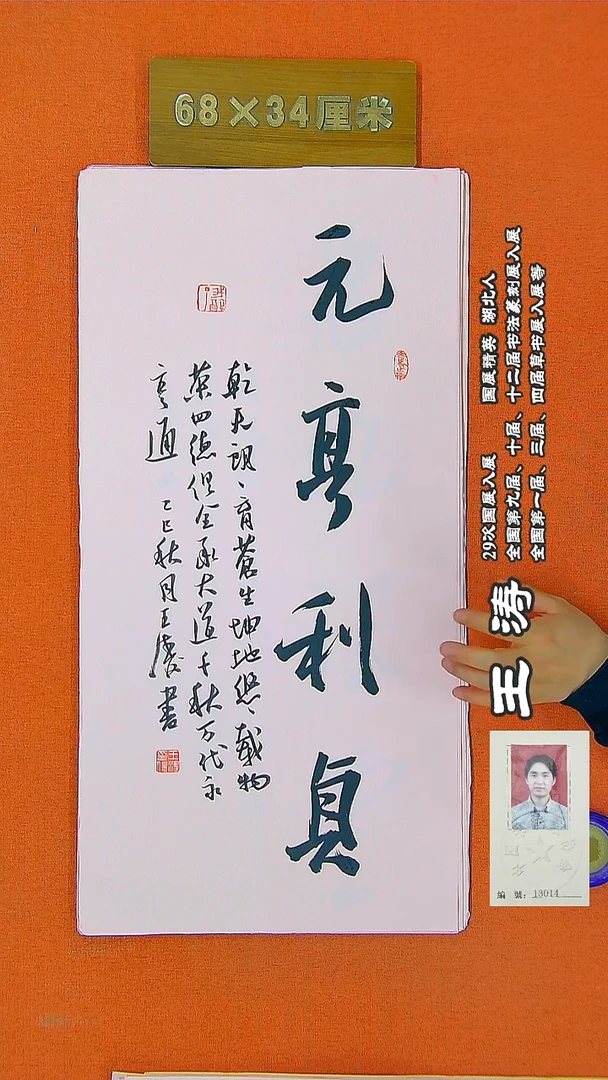 68×34厘米
元亨利贞
乾天朗朗育苍生坤地悠悠载物
荣四德俱全承大道千秋万代永
亨通
乙巳秋月王涛书
29次国展入展 国展精英 湖北人
全国第九届、十届、十二届书法篆刻展入展
全国第一届、三届、四届草书展入展等
王涛
编號:13014